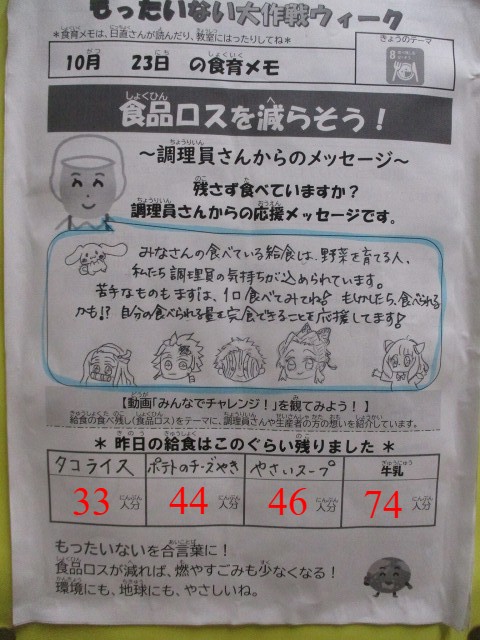 もったいない大作戦ウィーク
*食育メモは、日直さんが読んだり、教室にはったりしてね*
きょうのテーマ
8
10月 23日 の食育メモ
食品ロスを減らそう！
～調理員さんからのメッセージ～
残さず食べていますか？
調理員さんからの応援メッセージです。
みなさんの食べている給食は、野菜を育てる人、
私たち調理員の気持ちが込められています。
苦手なものもまずは、1口食べてみてね♪ もしかしたら、食べられる
かも!? 自分の食べられる量を完食できることを応援してます♪
【動画「みんなでチャレンジ！」を観てみよう！】
給食の食べ残し(食品ロス)をテーマに、調理員さんや生産者の方の想いを紹介しています。
* 昨日の給食はこのぐらい残りました *
タコライス ポテトのチーズやき やさいスープ 牛乳
33人分 44人分 46人分 74人分
もったいないを合言葉に！
食品ロスが減れば、燃やすごみも少なくなる！
環境にも、地球にも、やさしいね。